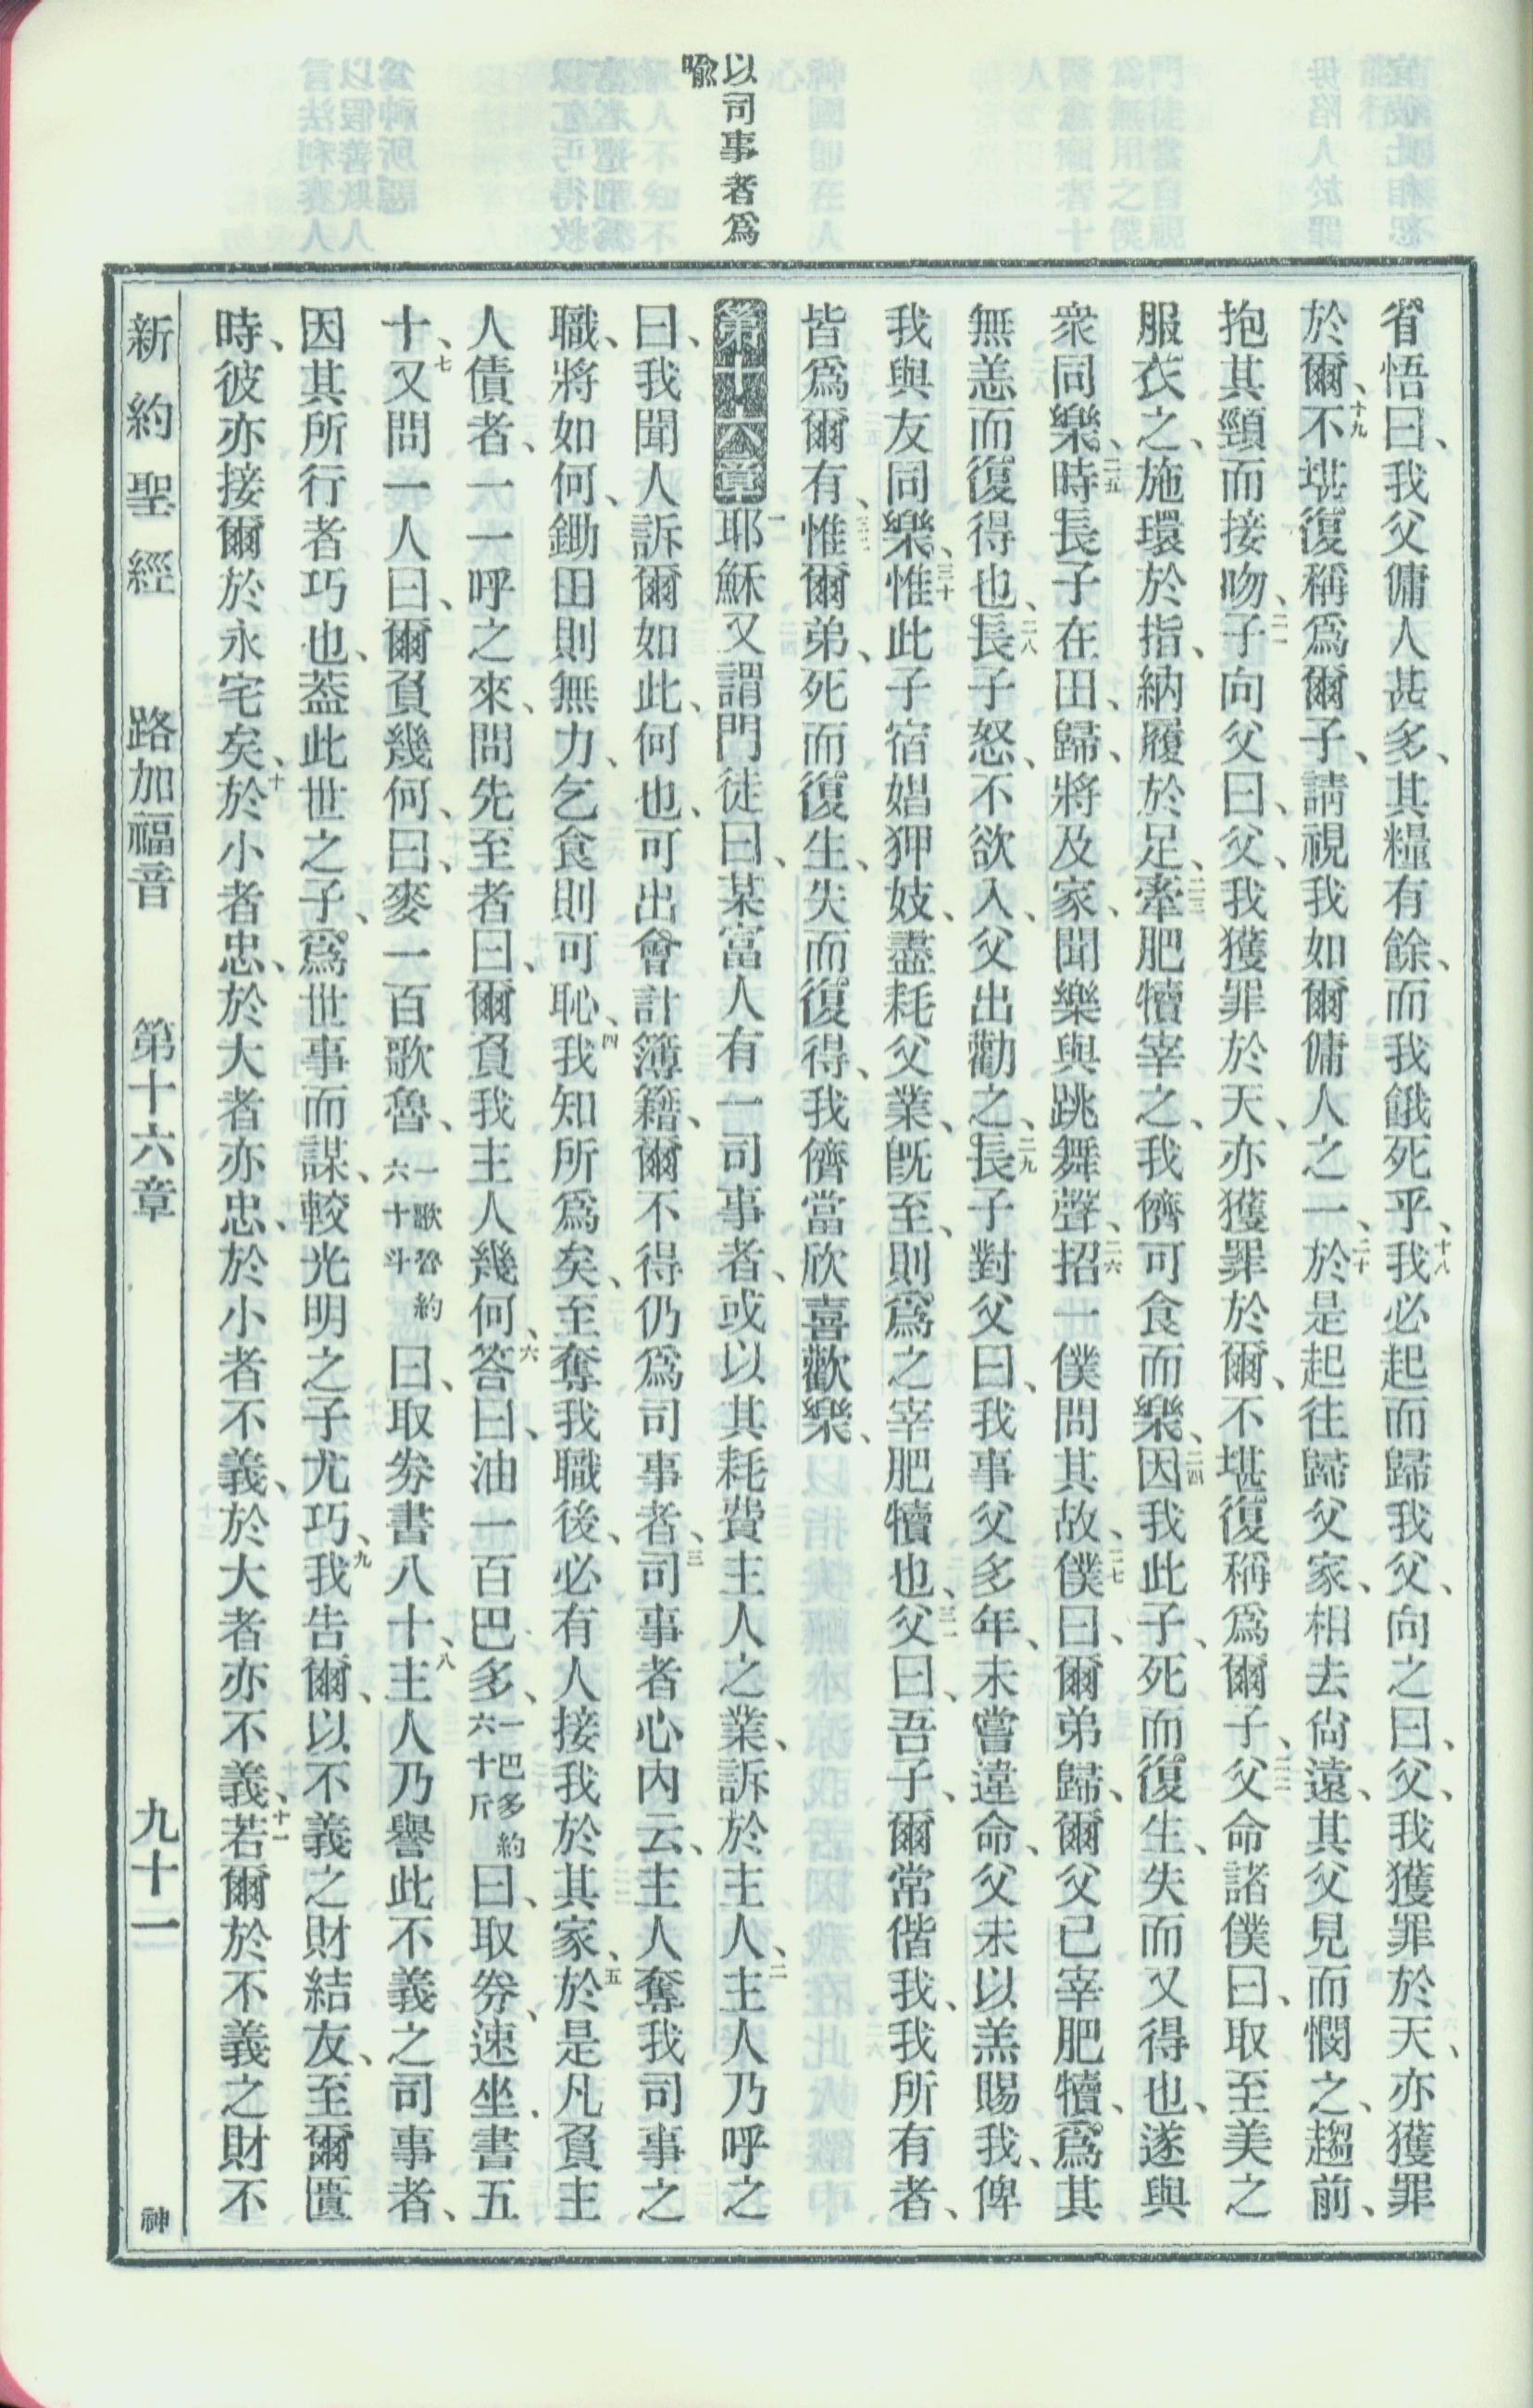 以司事者爲
喻
省悟曰、我父傭人甚多、其糧有餘、而我餓死乎、十八我必起而歸我父、向之曰、父、我獲罪於天、亦獲罪
於爾、十九不堪復稱爲爾子、請視我如爾傭人之一、二十於是起往歸父家、相去尙遠、其父見而憫之、趨前、
抱其頸而接吻、二一子向父曰、父、我獲罪於天、亦獲罪於爾、不堪復稱爲爾子、二二父命諸僕曰、取至美之
服衣之、施環於指、納履於足、二三牽肥犢宰之、我儕可食而樂、二四因我此子、死而復生、失而又得也、遂與
衆同樂、二五時長子在田、歸、將及家、聞樂與跳舞聲、二六招一僕問其故、二七僕曰、爾弟歸、爾父已宰肥犢、爲其
無恙而復得也、二八長子怒、不欲入、父出勸之、二九長子對父曰、我事父多年、未嘗違命、父未以羔賜我、俾
我與友同樂、三十惟此子宿娼狎妓、盡耗父業、旣至、則爲之宰肥犢也、三一父曰、吾子、爾常偕我、我所有者、
皆爲爾有、三二惟爾弟、死而復生、失而復得、我儕當欣喜歡樂、
第十六章 一耶穌又謂門徒曰、某富人有一司事者、或以其耗費主人之業、訴於主人、二主人乃呼之
曰、我聞人訴爾如此、何也、可出會計簿籍、爾不得仍爲司事者、三司事者心內云、主人奪我司事之
職、將如何、鋤田則無力、乞食則可恥、四我知所爲矣、至奪我職後、必有人接我於其家、五於是凡負主
人債者、一一呼之來、問先至者曰、爾負我主人幾何、六答曰、油一百巴多、一巴多約六十斤曰、取券、速坐書五
十、七又問一人曰、爾負幾何、曰、麥一百歌魯、一歌魯約六十斗曰、取券書八十、八主人乃譽此不義之司事者、
因其所行者巧也、葢此世之子、爲世事而謀、較光明之子尤巧、九我告爾、以不義之財結友、至爾匱
時、彼亦接爾於永宅矣、十於小者忠、於大者亦忠、於小者不義、於大者亦不義、十一若爾於不義之財不
新約聖經　路加福音　第十六章　九十一　神